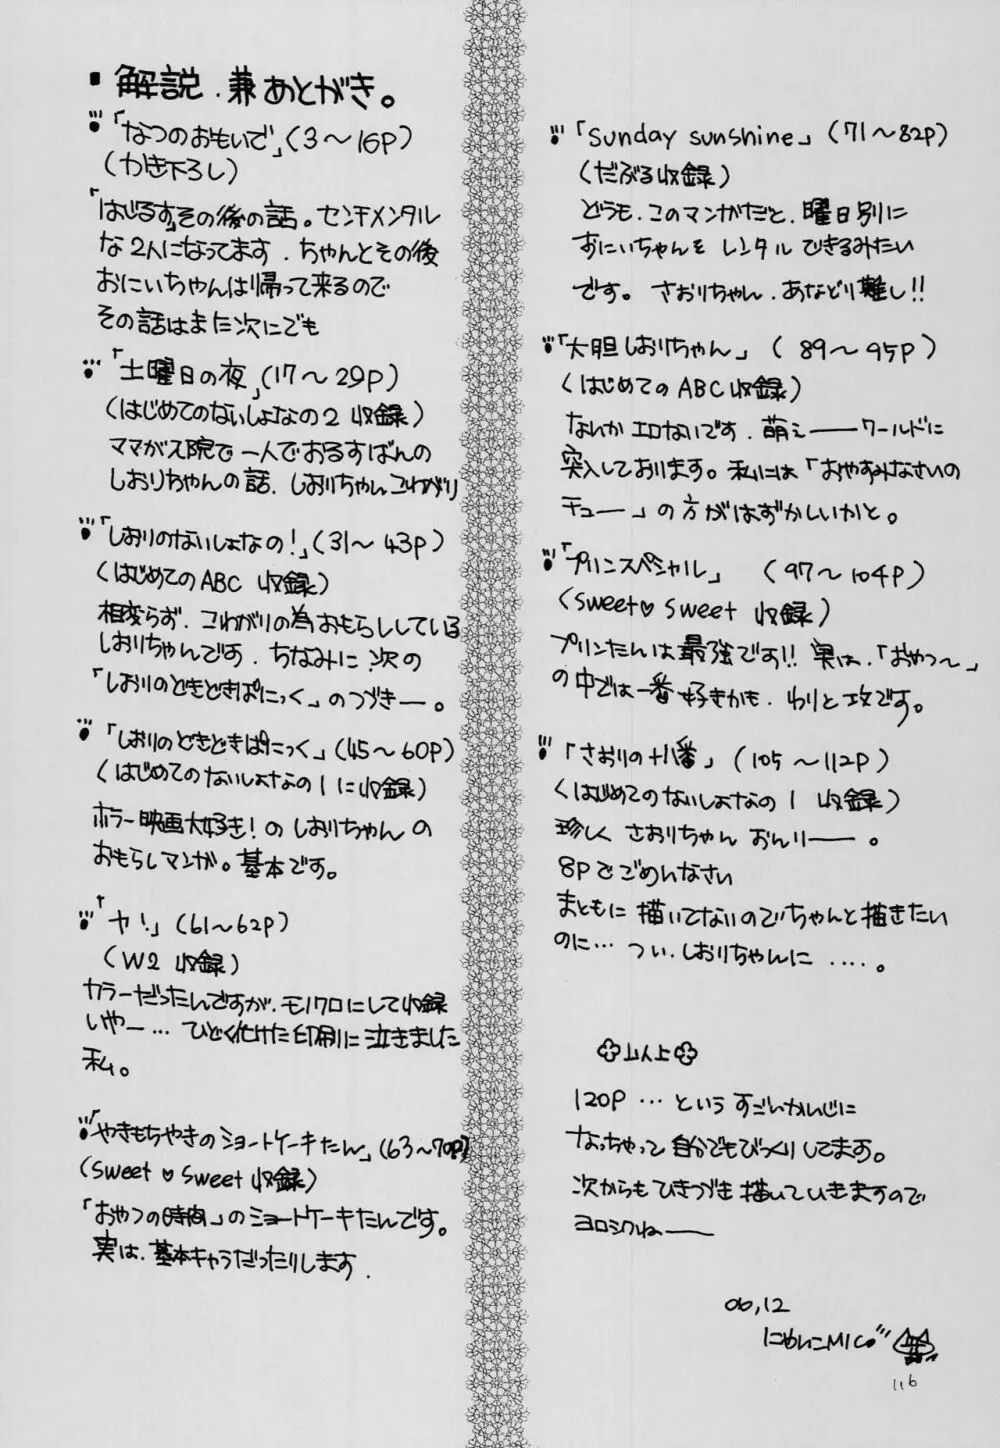 ・解説.兼あとがき。
「なつのおもいで」(3〜16P)
(かき下ろし)
「はじるす」その後の話。センチメンタル
な2人になってます.ちゃんとその後
おにいちゃんは帰って来るので
その話はまた次にでも
「土曜日の夜」(17〜29P)
(はじめてのないしょなの2 収録)
ママが入院で一人でおるすばんの
しおりちゃんの話.しおりちゃんコわがり
「しおりのないしょなの!」(31〜43P)
(はじめてのABC 収録)
相変らず.コわがりの為おもらししている
しおりちゃんです.ちなみに次の
「しおりのどきどきぱにっく」のつづきー。
「しおりのどきどきぱにっく」(45〜60P)
(はじめてのないしょなの1に収録)
ホラー映画大好き!のしおりちゃんの
おもらしマンガ。基本です。
「ヤ!」(61〜62P)
(W2 収録)
カラーだったんですが.モノクロにして収録
いやー…ひどく化けた印刷に泣きました
私。
「やきもちやきのショートケーキたん」(63〜70P)
(sweet♡sweet収録)
「おやつの時間」のショートケーキたんです。
実は.基本キャラだったりします.
「sunday sunshine」(71〜82P)
(だぶる収録)
どうも.このマンガだと.曜日別に
おにいちゃんをレンタルできるみたい
です。さおりちゃん.あなどり難し!!
「大胆しおりちゃん」(89〜95P)
(はじめてのABC収録)
なんかエロないです.萌えーワールドに
突入しております。私には「おやすみなさいの
チュー」の方がはずかしいかと。
「プリンスペシャル」(97〜104P)
(sweet♡sweet 収録)
プリンたんは最強です!!実は.「おやつ〜」
の中では一番好きかも.わりと攻です。
「さおりの十八番」(105〜112P)
(はじめてのないしょなの1 収録)
珍しくさおりちゃんおんりー。
8Pでごめんなさい
まともに描いてないのでちゃんと描きたい
のに…つい.しおりちゃんに….。
以上
120P…というすごいかんじに
なっちゃって自分でもびっくりしてます。
次からもひきつづき描いていきますので
ヨロシクねー
06,12
にゃんこMIC
116